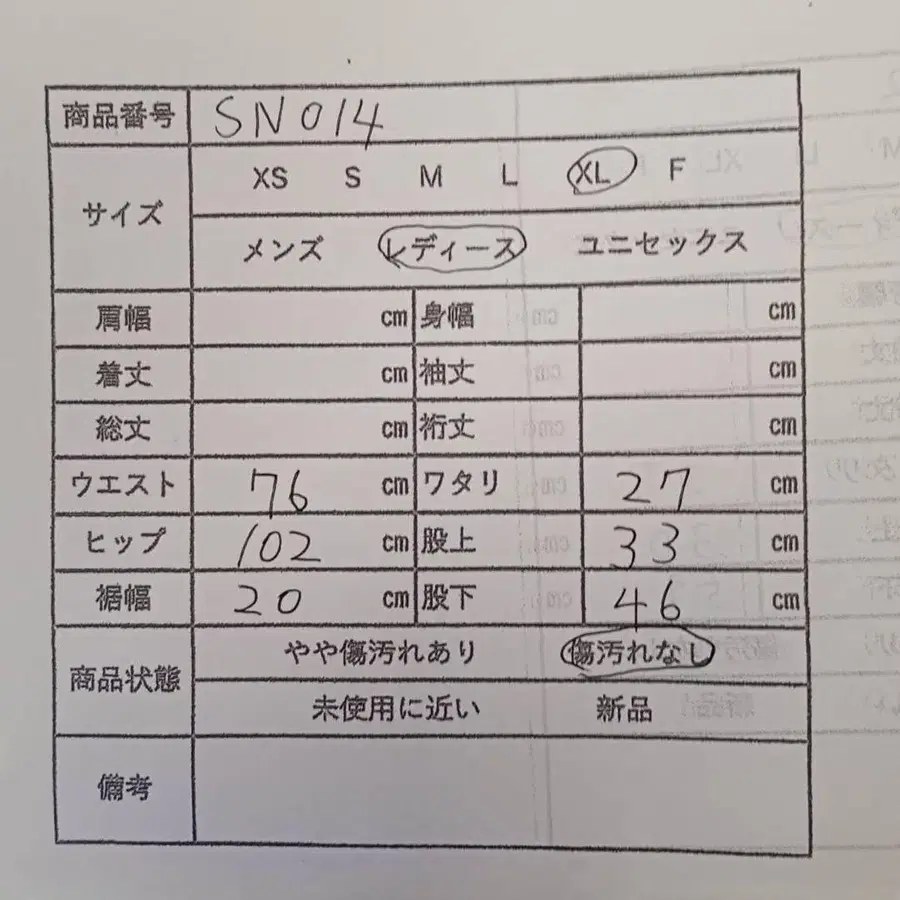 商品番号 SN014
サイズ XS S M L XL F
メンズ レディース ユニセックス
肩幅 cm 身幅 cm
着丈 cm 袖丈 cm
総丈 cm 裄丈 cm
ウエスト 76 cm ワタリ 27 cm
ヒップ 102 cm 股上 33 cm
裾幅 20 cm 股下 46 cm
商品状態 やや傷汚れあり 傷汚れなし
未使用に近い 新品
備考